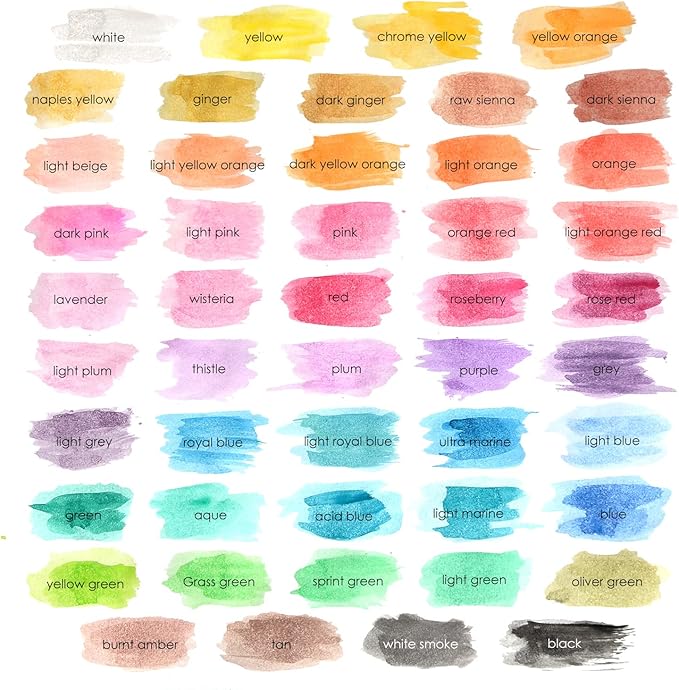 white
yellow
chrome yellow
yellow orange
naples yellow
ginger
dark ginger
raw sienna
dark sienna
light beige
light yellow orange
dark yellow orange
light orange
orange
dark pink
light pink
pink
orange red
light orange red
lavender
wisteria
red
roseberry
rose red
light plum
thistle
plum
purple
grey
light grey
royal blue
light royal blue
ultra marine
light blue
green
aque
acid blue
light marine
blue
yellow green
Grass green
sprint green
light green
oliver green
burnt amber
tan
white smoke
black